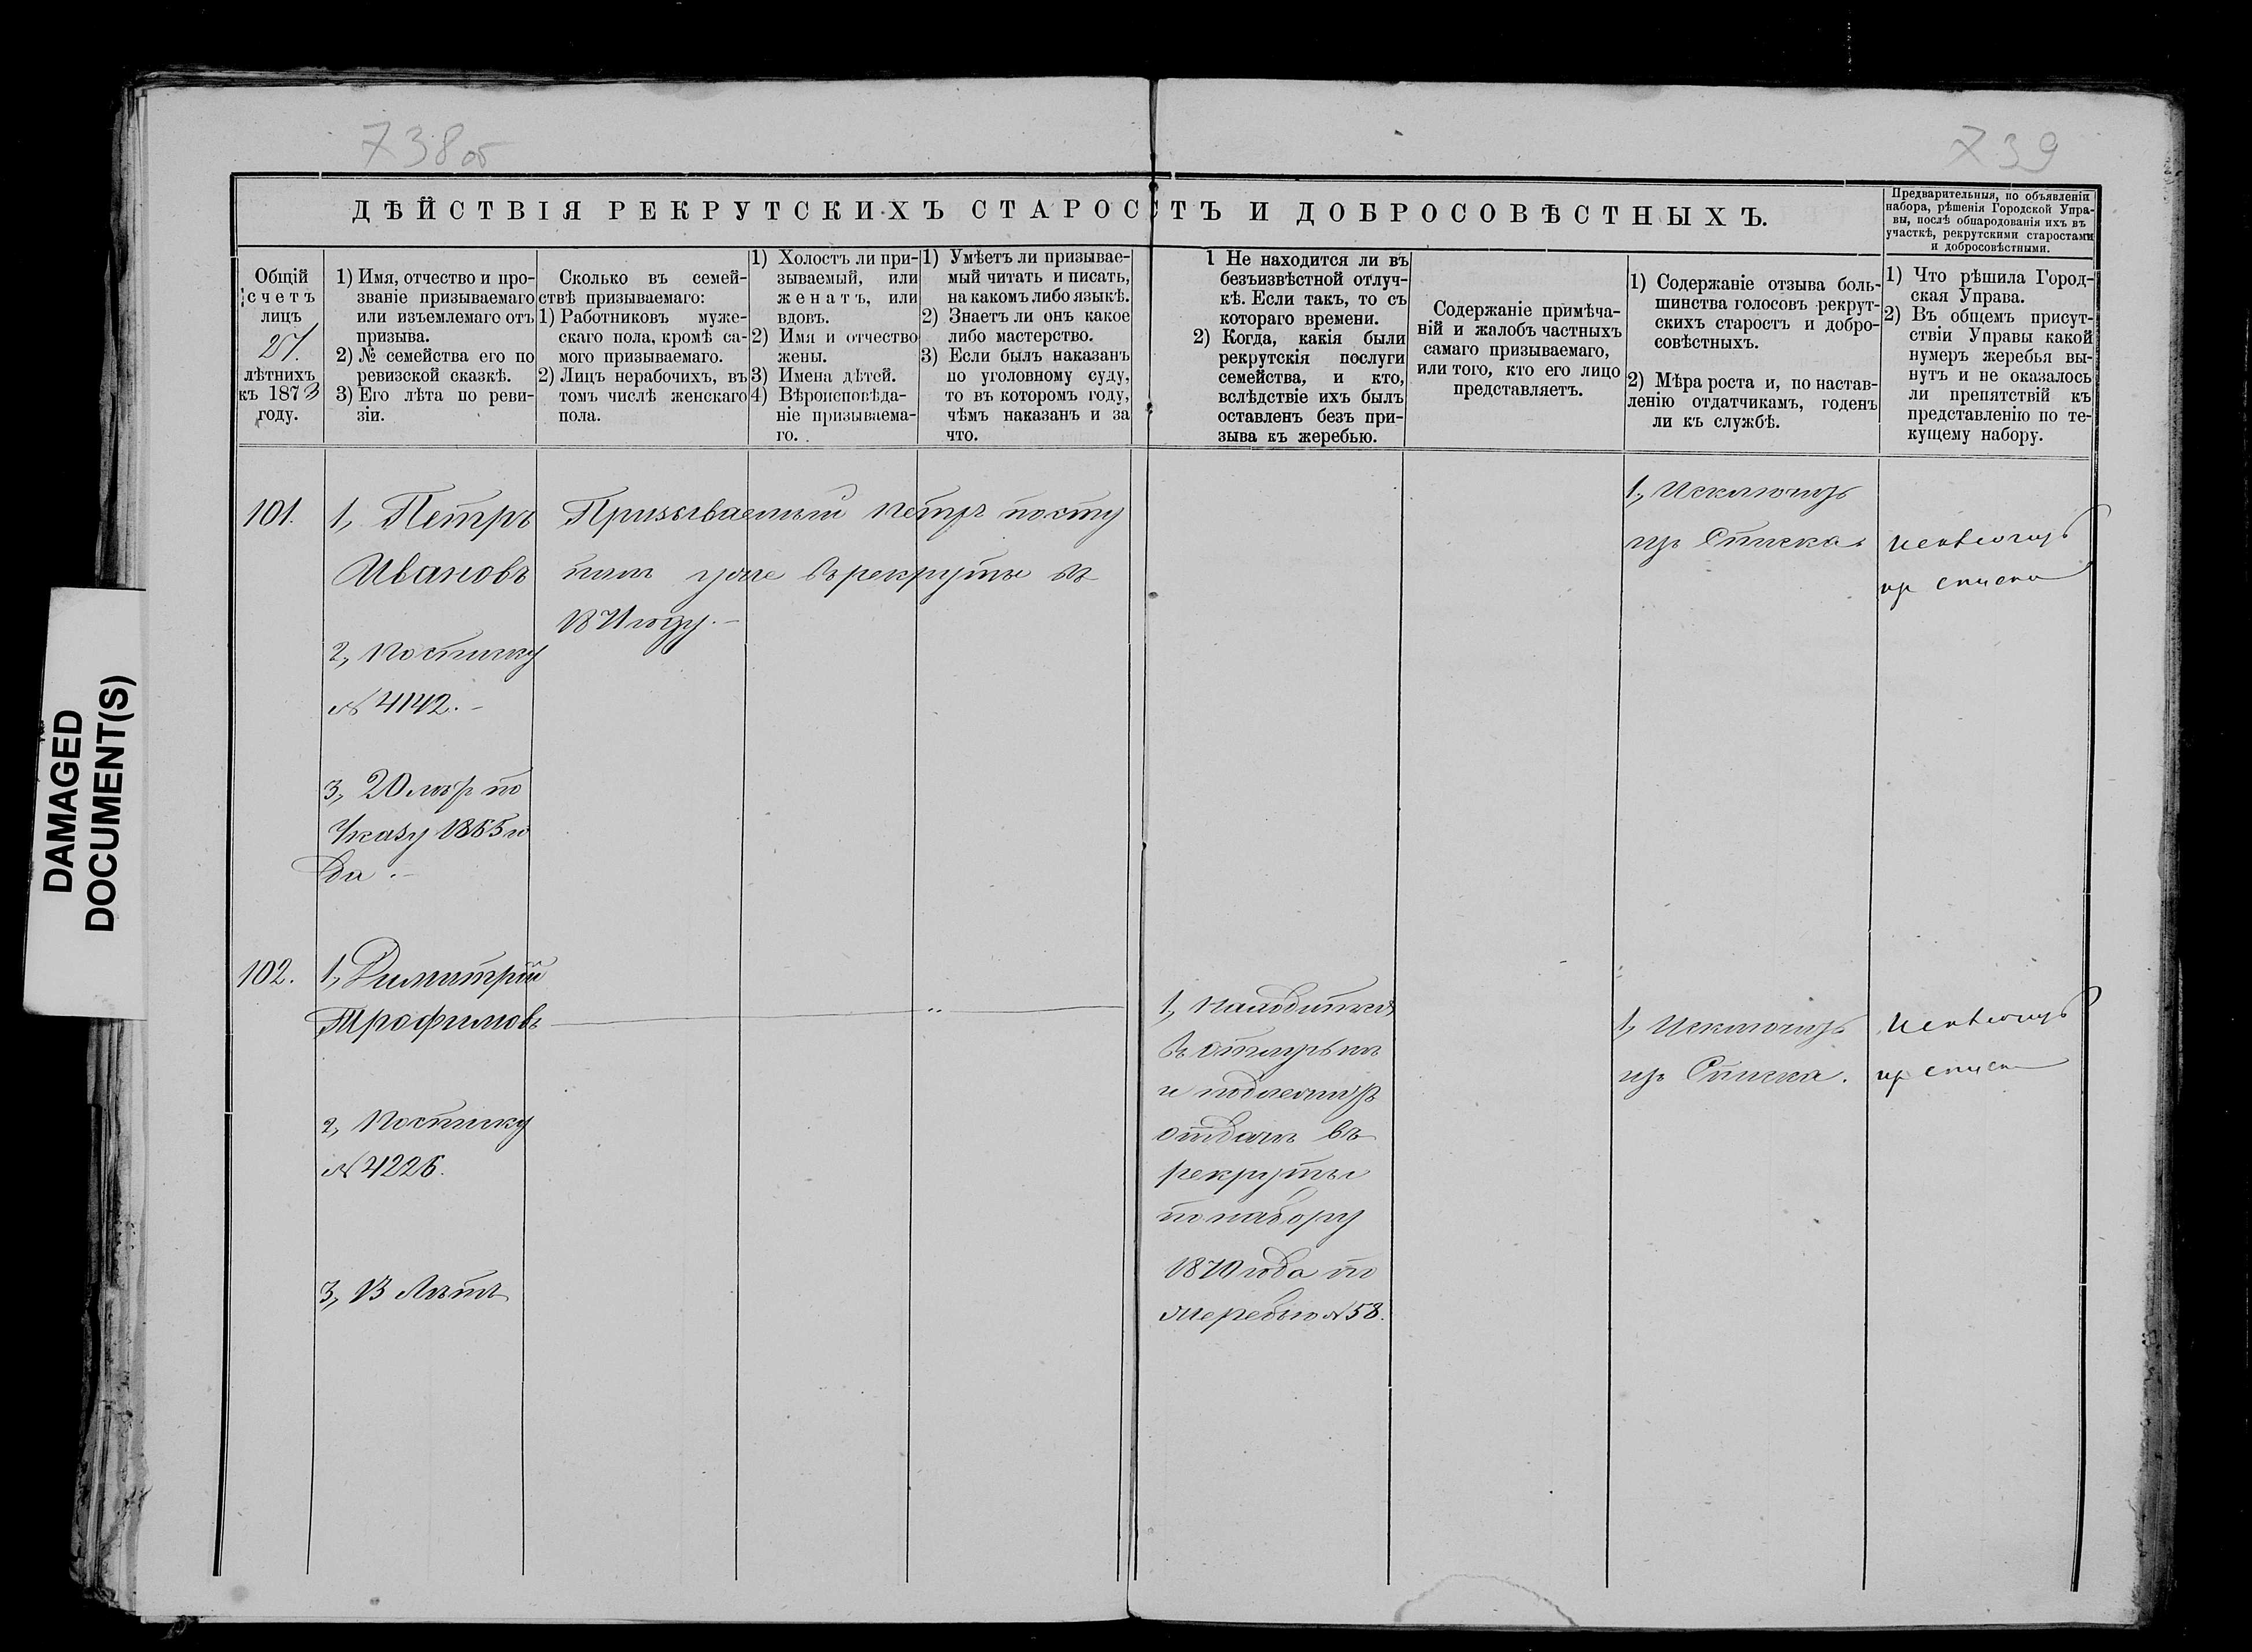 738об
739
ДѢЙСТВІЯ РЕКРУТСКИХЪ СТАРОСТЪ И ДОБРОСОВѢСТНЫХЪ.
Предварительныя, по объявленіи
набора, рѣшенія Городской Упра-
вы, послѣ обнародованія ихъ въ
участкѣ, рекрутскими старостами
и добросовѣстными.
Общій
счетъ
лицъ
21.
лѣтнихъ
къ 1873
году.
1) Имя, отчество и про-
званіе призываемаго
или изъемлемаго отъ
призыва.
2) № семейства его по
ревизской сказкѣ.
3) Его лѣта по реви-
зіи.
Сколько въ семей-
ствѣ призываемаго:
1) Работниковъ муже-
скаго пола, кромѣ са-
мого призываемаго.
2) Лицъ нерабочихъ, въ
томъ числѣ женскаго
пола.
1) Холостъ ли при-
зываемый, или
женатъ, или
вдовъ.
2) Имя и отчество
жены.
3) Имена дѣтей.
4) Вѣроисповѣда-
ніе призываема-
го.
1) Умѣетъ ли призывае-
мый читать и писать,
на какомъ либо языкѣ.
2) Знаетъ ли онъ какое
либо мастерство.
3) Если былъ наказанъ
по уголовному суду,
то въ которомъ году,
чѣмъ наказанъ и за
что.
1 Не находится ли въ
безъизвѣстной отлуч-
кѣ. Если такъ, то съ
котораго времени.
2) Когда, какія были
рекрутскія послуги
семейства, и кто,
вслѣдствіе ихъ былъ
оставленъ безъ при-
зыва къ жеребью.
Содержаніе примѣча-
ній и жалобъ частныхъ
самаго призываемаго,
или того, кто его лицо
представляетъ.
1) Содержаніе отзыва боль-
шинства голосовъ рекрут-
скихъ старостъ и добро-
совѣстныхъ.
2) Мѣра роста и, по настав-
ленію отдатчикамъ, годенъ
ли къ службѣ.
1) Что рѣшила Город-
ская Управа.
2) Въ общемъ присут-
ствіи Управы какой
нумеръ жеребья вы-
нутъ и не оказалось
ли препятствій къ
представленію по те-
кущему набору.
101.
1, Петръ
Ивановъ
2, По списку
№ 4142.
3, 20 лѣтъ по
Указу 1865 го
да.
Призываемый Петръ посту
пилъ уже въ рекруты въ
1871 году.
1, Исключить
изъ Списка
исключить
изъ списка
102.
1, Димитрій
Трофимовъ
2, По списку
№ 4226.
3, 13 Лѣтъ
1, Находится
въ
и подлежитъ
отдачѣ въ
рекруты
по набору
1870 года по
жеребью № 58.
1, Исключить
изъ Списка.
исключить
изъ списка
DAMAGED
DOCUMENT(S)